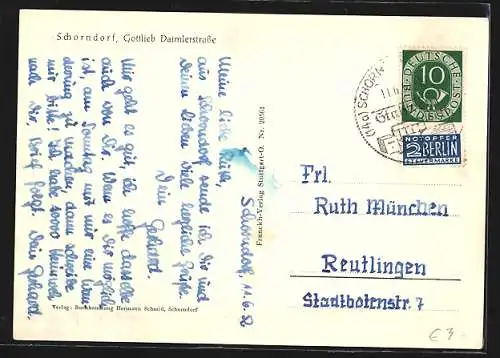 Schorndorf, Gottlieb Daimlerstraße
Schorndorf, 11.6.52
Meine liebe Ruth,
aus Schorndorf sende ich dir und
deinen lieben viele herzliche Grüße.
Dein Gerhard.
Mir geht es gut, ich hoffe dasselbe
auch von Dir. Wenn es Dir möglich
ist, am Sonntag mit mir eine
zu machen, dann schreibe
mir bitte! Ich habe
nach Dir. Brief folgt. Dein Gerhard.
Verlag: Buchhandlung Hermann Schmid, Schorndorf
Franckh-Verlag Stuttgart-O. Nr. 20964
(14a) SCHORN
DEUTSCHE
10
BUNDESPOST
NOTOPFER
2 BERLIN
STEUERMARKE
Frl.
Ruth München
Reutlingen
Stadtbotenstr. 7
€3